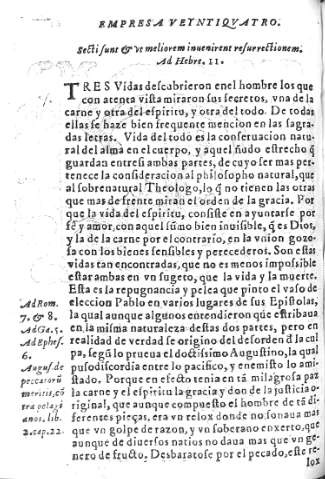 EMPRESA VEYNTIQVATRO.
Secti sunt & vt meliorem inuenirent resurrectionem.
Ad Hebre. 11.
TRES Vidas descubrieron en el hombre los que
con atenta vista miraron sus secretos, vna de la
carne y otra del espiritu, y otra del todo. De todas
ellas se haze bien frequente mencion en las sagra
das letras. Vida del todo es la conseruacion natu
ral del alma en el cuerpo, y aquel ñudo estrecho q̃
guardan entre si ambas partes, de cuyo ser mas per
tenece la consideracion al philosopho natural, que
al sobrenatural Theologo, lo q̃ no tienen las otras
que mas de frente miran el orden de la gracia. Por
que la vida del espiritu, consiste en ayuntarse por
fê y amor, con aquel sũmo bien inuisible, q̃ es Dios,
y la de la carne por el contrario, en la vnion gozo-
sa con los bienes sensibles y perecederos. Son estas
vidas tan encontradas, que no es menos impossible
estar ambas en vn sugeto, que la vida y la muerte.
Esta es la repugnancia y plea que pinto el vaso de
eleccion Pablo en varios lugares de sus Epistolas,
la qual aunque algunos entendieron que estribaua
en la misma naturaleza destas dos partes, pero en
realidad de verdad se origino del desorden d̃ la cul
pa, segũ lo prueua el doctissimo Augustino, la qual
puso discordia entre lo pacifico, y enemisto lo ami-
stado. Porque en efecto tenia en tã milagrosa paz
la carne y el espiritu la gracia y don de la justicia o-
riginal, que aunque compuesto el hombre de tã di-
ferentes pieças, era vn relox donde no sonaua mas
que vn golpe de razon, y vn soberano enxerto, que
aunque de diuersos natios no daua mas que vn ge-
nero de fructo. Desbaratose por el pecado, este re-
lox
Ad Rom.
7. & 8.
Ad Ga. 5.
Ad Ephes.
6.
Augus. de
peccatorũ
meritis, cõ
tra pelagi
anos. lib.
2. cap. 22.